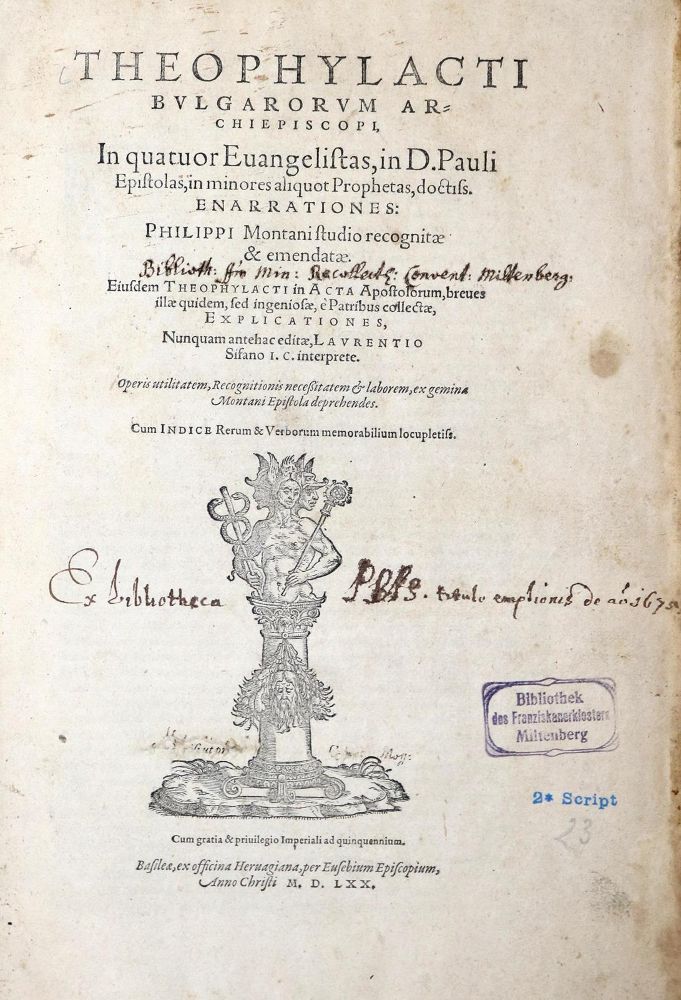 THEOPHYLACTI
BVLGARORVM AR=
CHIEPISCOPI,
In quatuor Euangelistas, in D. Pauli
Epistolas, in minores aliquot Prophetas, doctiss.
ENARRATIONES:
PHILIPPI Montani studio recognitæ
& emendatæ.
Biblioth: frū Min: Recollectī: Convent: Miltenberg:
Eiusdem THEOPHYLACTI in ACTA Apostolorum, breues
illæ quidem, sed ingeniosæ, è Patribus collectæ,
EXPLICATIONES,
Nunquam antehac editæ, LAVRENTIO
Sifano I. C. interprete.
Operis utilitatem, Recognitionis necessitatem & laborem, ex gemina
Montani Epistola deprehendes.
Cum INDICE Rerum & Verborum memorabilium locupletiss.
Ex bibliotheca titulo emptionis de aō 1675
Bibliothek
des Franziskanerklosters
Miltenberg
2* Script
23
Cum gratia & priuilegio Imperiali ad quinquennium.
Basileæ, ex officina Heruagiana, per Eusebium Episcopium,
Anno Christi M. D. LXX.